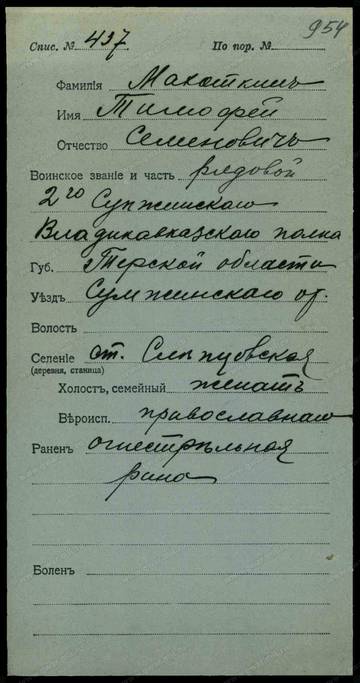 954
Спис. № 437 По пор. №
Фамилія Махоткинъ
Имя Тимофей
Отчество Семеновичъ
Воинское званіе и часть рядовой
2го Сунженскаго
Владикавказского полка
Губ. Терской области
Уѣздъ Сунженскаго от.
Волость
Селеніе ст. Слепцовская
(деревня, станица)
Холостъ, семейный женатъ
Вѣроисп. православнаго
Раненъ огнестрѣльная
рана
Боленъ